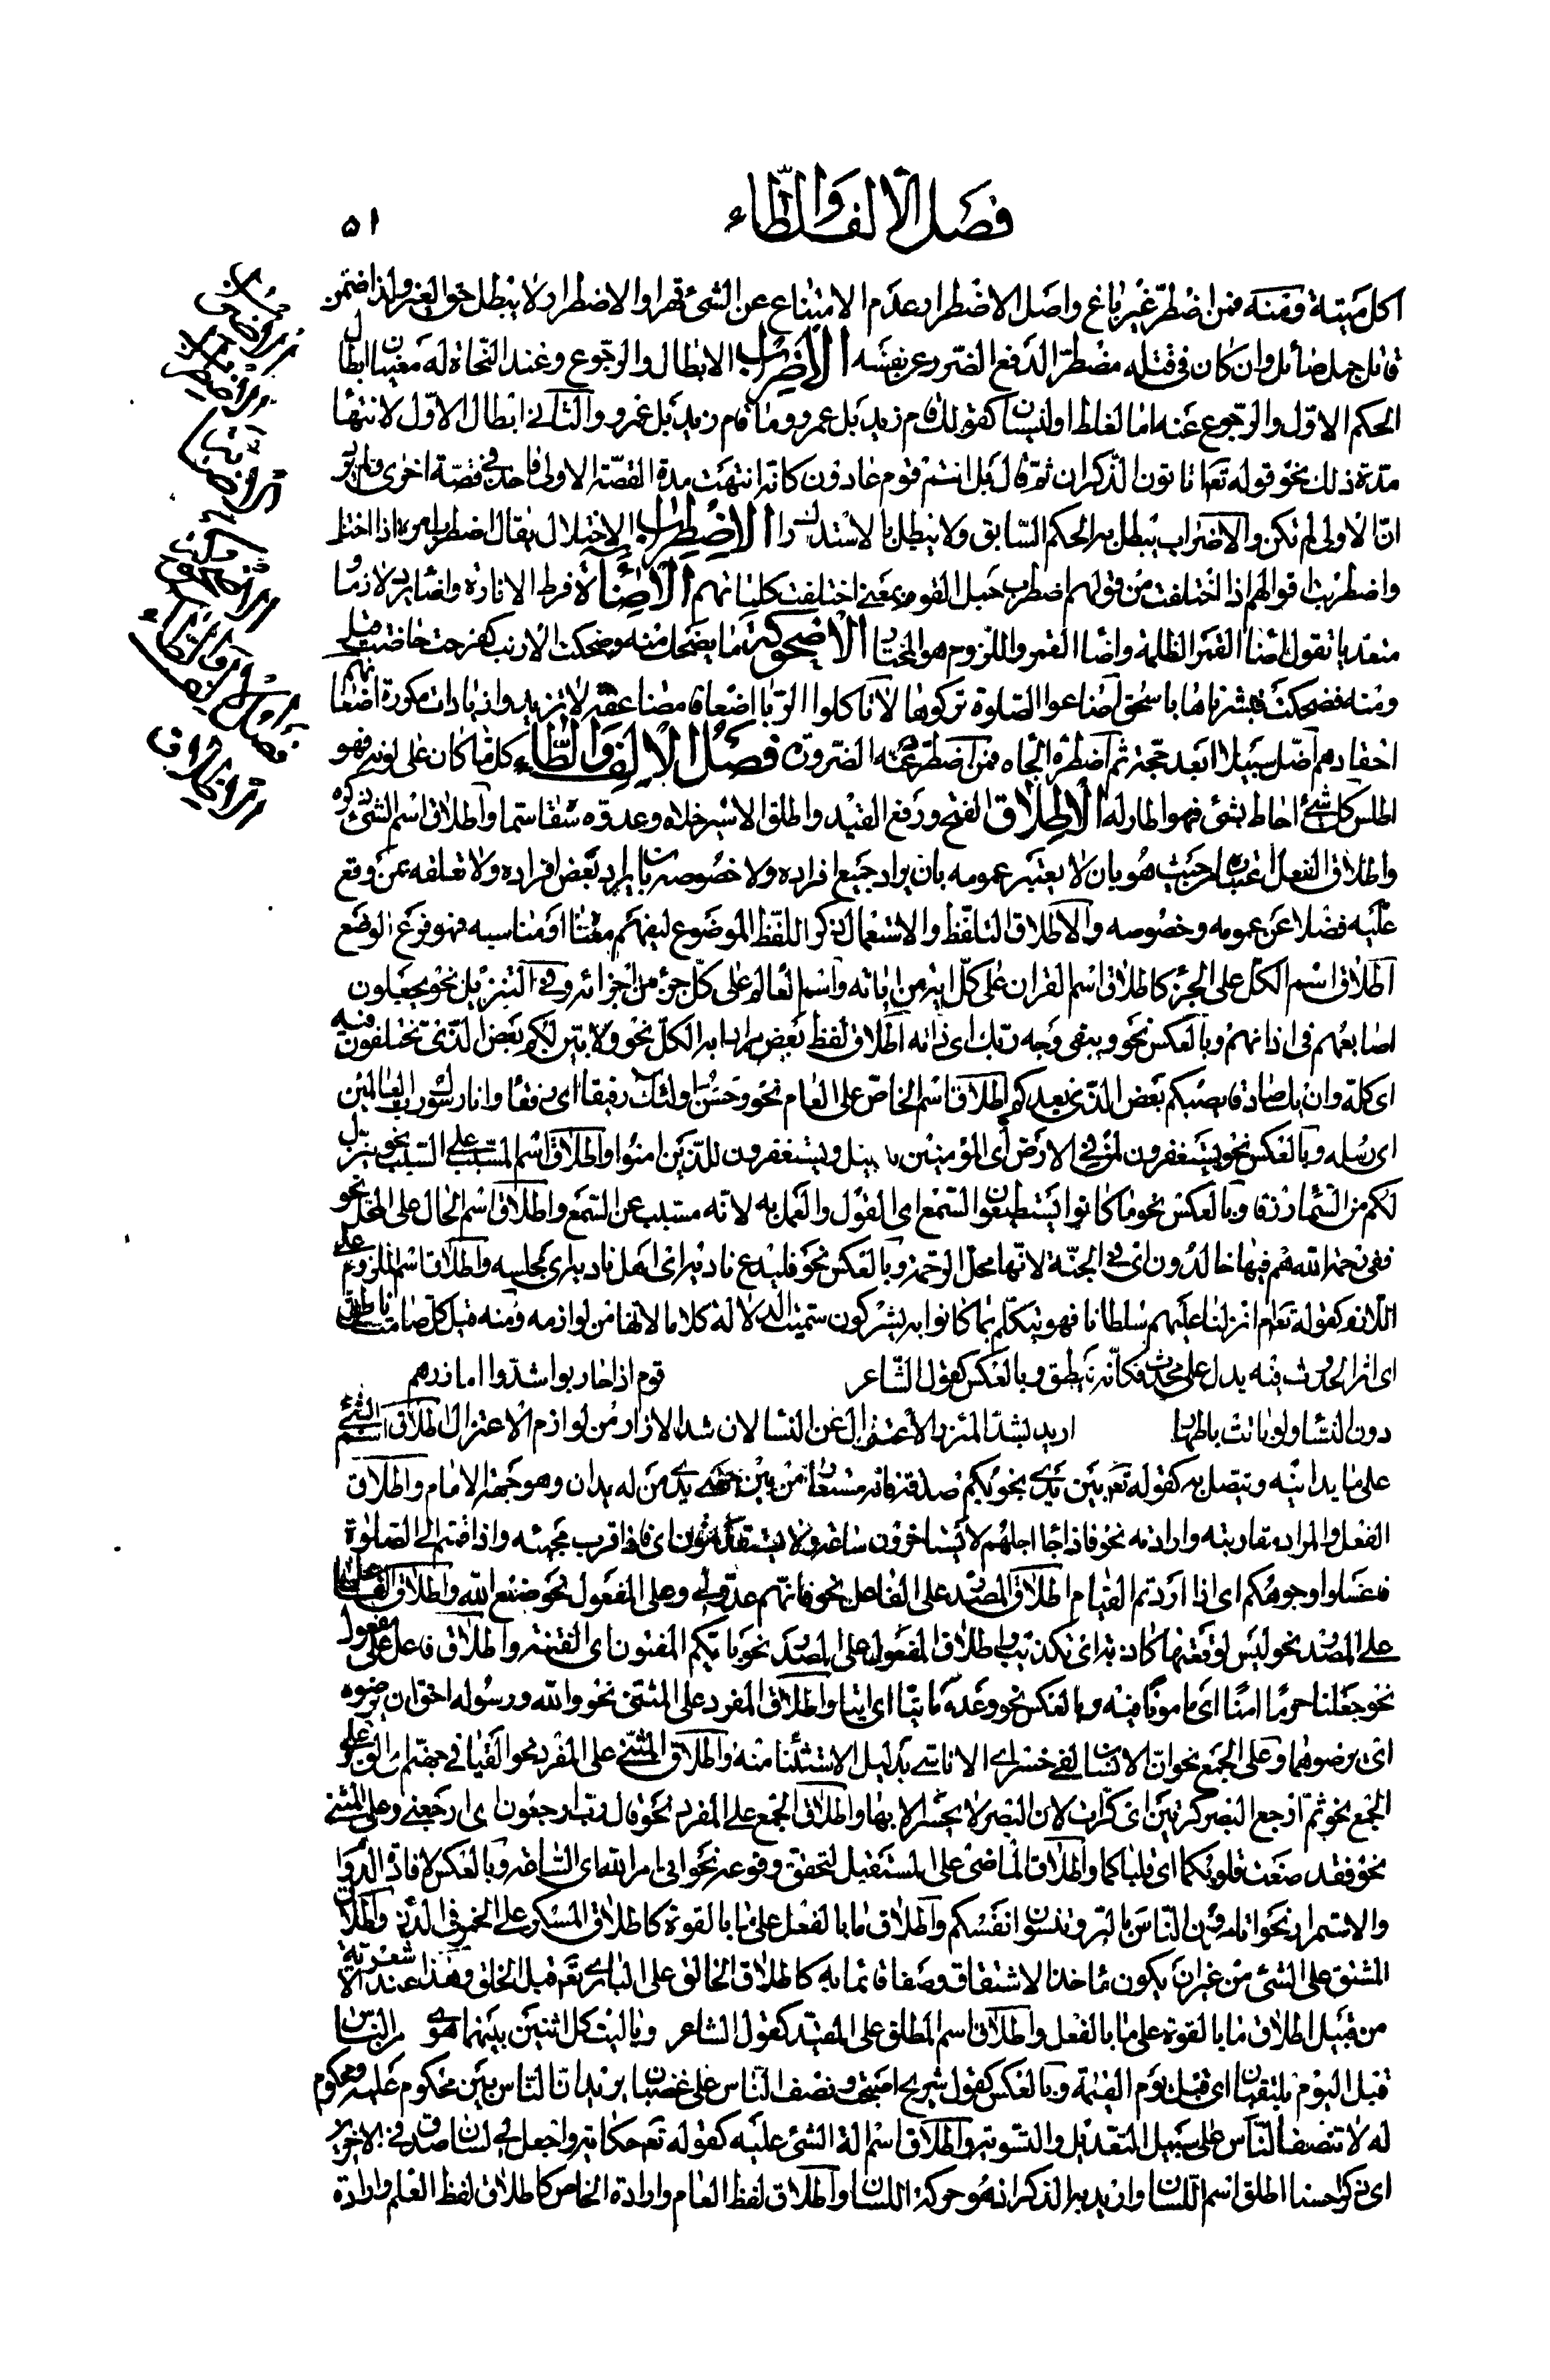 فصل الالف والطاء
٥١
اكل ميتة ومنه فمن اضطر غير باغ واصل الاضطرار عدم الامتناع عن الشئ قهرا والاضطرار لا يبطل حق الغير ولذا ضمن
قاتل جمل صائل وان كان فى قتله مضطرا لدفع الضرر عن نفسه الاضراب الابطال والرجوع وعند النحاة له معنيان ابطال
الحكم الاول والرجوع عنه اما لغلط او لنسيان كقولك قام زيد بل عمرو وما قام زيد بل عمرو والثانى ابطال الاول لانتهاء
مدة ذلك نحو قوله تعالى اتاتون الذكران ثم قال بل انتم قوم عادون كانه انتهت مدة القصة الاولى فاخذ فى قصة اخرى
ان الاولى لم تكن والاضراب يبطل به الحكم السابق ولا يبطل بالاستدراك الاضطراب الاختلال يقال اضطرب امره اذا اختل
واضطربت اقوالهم اذا اختلفت من قولهم اضطرب حبل القوم بمعنى اختلفت كلماتهم الاضاءة فرط الانارة واضاء يرد لازما و
متعديا تقول اضاء القمر الظلمة واضاء القمر واللزوم هو المختار الاضحوكة ما يضحك منه وضحكت الارنب كفرحت حاضت قيل
ومنه فضحكت فبشرناها باسحق اضاعوا الصلوة تركوها لا تاكلوا الربا اضعافا مضاعفة لا تزيدوا زيادات مكررة اضغانهم
احقادهم اضل سبيلا ابعد حجة ثم اضطره الجاه فمن اضطر دعته الضرورة فصل الالف والطاء كل ما كان على لونه فهو
اطلس كل شئ احاط بشئ فهو اطار له الاطلاق الفتح ورفع القيد واطلق الاسير خلاه وعدوه سقاه سما واطلاق اسم الشئ ذكره
واطلاق الفعل اعتباره من حيث هو بان لا يعتبر عمومه بان يراد جميع افراده ولا خصوصه بان يراد بعض افراده ولا تعلقه بمن وقع
عليه فضلا عن عمومه وخصوصه والاطلاق التلفظ والاستعمال ذكر اللفظ الموضوع ليفهم معناه او مناسبه فهو فرع الوضع
اطلاق اسم الكل على الجزء كاطلاق اسم القران على كل اية من اياته واسم العالم على كل جزء من اجزائه وفى التنزيل نحو يجعلون
اصابعهم فى اذانهم وبالعكس نحو ويبقى وجه ربك اى ذاته اطلاق لفظ بعض مرادا به الكل نحو ولابين لكم بعض الذى تختلفون فيه
اى كله وان يك صادقا يصبكم بعض الذى يعدكم اطلاق اسم الخاص على العام نحو وحسن اولئك رفيقا اى رفقاء وانا رسول رب العالمين
اى رسله وبالعكس نحو يستغفرون لمن فى الارض اى المؤمنين بدليل ويستغفرون للذين امنوا واطلاق اسم المسبب على السبب نحو ينزل
لكم من السماء رزقا وبالعكس نحو ما كانوا يستطيعون السمع اى القول والعمل به لانه مسبب عن السمع واطلاق اسم الحال على المحل نحو
ففى رحمة الله هم فيها خالدون اى فى الجنة لانها محل الرحمة وبالعكس نحو فليدع ناديه اى اهل ناديه اى مجلسه واطلاق اسم الملزوم على
اللازم كقوله تعالى ام انزلنا عليهم سلطانا فهو يتكلم بما كانوا به يشركون سميت الدلالة كلاما لانها من لوازمه ومنه قيل كل صامت ناطق
اى اثر الحدوث فيه يدل على محدثه فكانه ينطق وبالعكس كقول الشاعر قوم اذا حاربوا شدوا مازرهم
دون النساء ولو باتت باطهار اريد بشد المئزر الاعتزال عن النساء لان شد الازار من لوازم الاعتزال اطلاق اسم الشئ
على ما يدانيه ويتصل به كقوله تعالى بين يدى نجويكم صدقة فانه مستعار من بين جهتى يدى من له يدان وهو جهة الامام واطلاق
الفعل والمراد مقاربته وارادته نحو فاذا جاء اجلهم لا يستاخرون ساعة ولا يستقدمون اى فاذا قرب مجيئه واذا قمتم الى الصلوة
فاغسلوا وجوهكم اى اذا اردتم القيام اطلاق المصدر على الفاعل نحو فانهم عدو لى وعلى المفعول نحو صنع الله واطلاق الفاعل
على المصدر نحو ليس لوقعتها كاذبة اى تكذيب واطلاق المفعول على المصدر نحو بايكم المفتون اى الفتنة واطلاق فاعل على مفعول
نحو جعلنا حرما امنا اى مامونا فيه وبالعكس نحو وعده ماتيا اى اتيا واطلاق المفرد على المثنى نحو والله ورسوله احق ان يرضوه
اى يرضوهما وعلى الجمع نحو ان الانسان لفى خسر اى الاناسى بدليل الاستثناء منه واطلاق المثنى على المفرد نحو القيا فى جهنم اى الق وعلى
الجمع نحو ثم ارجع البصر كرتين اى كرات لان البصر لا يحسر الا بها واطلاق الجمع على المفرد نحو قال رب ارجعون اى ارجعنى وعلى المثنى
نحو فقد صغت قلوبكما اى قلباكما واطلاق الماضى على المستقبل لتحقق وقوعه نحو اتى امر الله اى الساعة وبالعكس لافادة الدوام
والاستمرار نحو اتامرون الناس بالبر وتنسون انفسكم واطلاق ما بالفعل على ما بالقوة كاطلاق المسكر على الخمر فى الدن واطلاق
المشتق على الشئ من غير ان يكون ماخذ الاشتقاق وصفا قائما به كاطلاق الخالق على البارى تعالى قبل الخلق وهذا عند الاشعرية
من قبيل اطلاق ما بالقوة على ما بالفعل واطلاق اسم المطلق على المقيد كقول الشاعر ويا ليت كل اثنين بينهما هوى من الناس
قبل اليوم يلتقيان اى قبل يوم القيمة وبالعكس كقول شريح اصبحت ونصف الناس على غضبان يريد ان الناس بين محكوم عليه ومحكوم
له لا تنصيف الناس على سبيل التعديل والتسوية واطلاق اسم الة الشئ عليه كقوله تعالى حكاية واجعل لى لسان صدق فى الاخرين
اى ذكرا حسنا اطلق اسم اللسان واريد به الذكر انه هو حركة اللسان واطلاق لفظ العام وارادة الخاص كاطلاق لفظ العلم وارادة